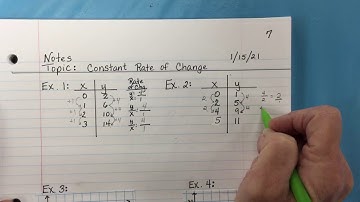 7
Notes 1/15/21
Topic: Constant Rate of Change
Ex. 1: x y Rate of Chg Ex. 2: x y
0 2 y/x 4/1 0 1 4/2 = 2/1
1 6 y/x 4/1 2 5
2 10 y/x 4/1 4 9
3 14 5 11
+1 +4 +1 +4 +1 +4 2 4 2 4
Ex 3: Ex. 4: